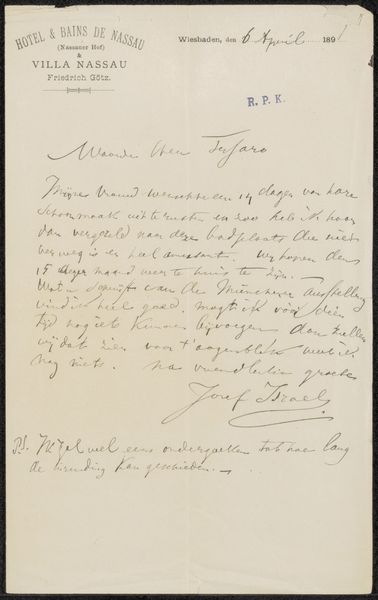 HOTEL & BAINS DE NASSAU
(Nassauer Hof)
&
VILLA NASSAU
Friedrich Götz.
Wiesbaden, den 6 April 1891
R. P. K.
Waarde Heer Tessaro
Mijne Vrouw wenschte een 14 dagen van hare
schoonmaak uit te rusten en zoo heb ik haar
dan vergezeld naar deze badplaats die niet
ver weg is en heel amusant. Wij hopen den
15 dezer maand weer te huis te zijn.
Wat u schrijft van de Münchener Austellung
vind ik heel goed. mogt ik voor dien
tijd nog iets kunnen bijvoegen dan zullen
wij dat zien voor 't oogenblik weet ik
nog niets. na vriendelijke groete
Jozef Israels
P.S. Ik zal wel eens onderzoeken tot hoe lang
de inzending kan geschieden.